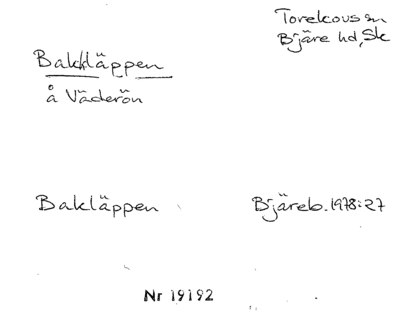 Torekovs sn
Bjäre hd, Sk
Bakkläppen
å Väderön
Bakläppen
Bjäreb. 1978:27
Nr 19192